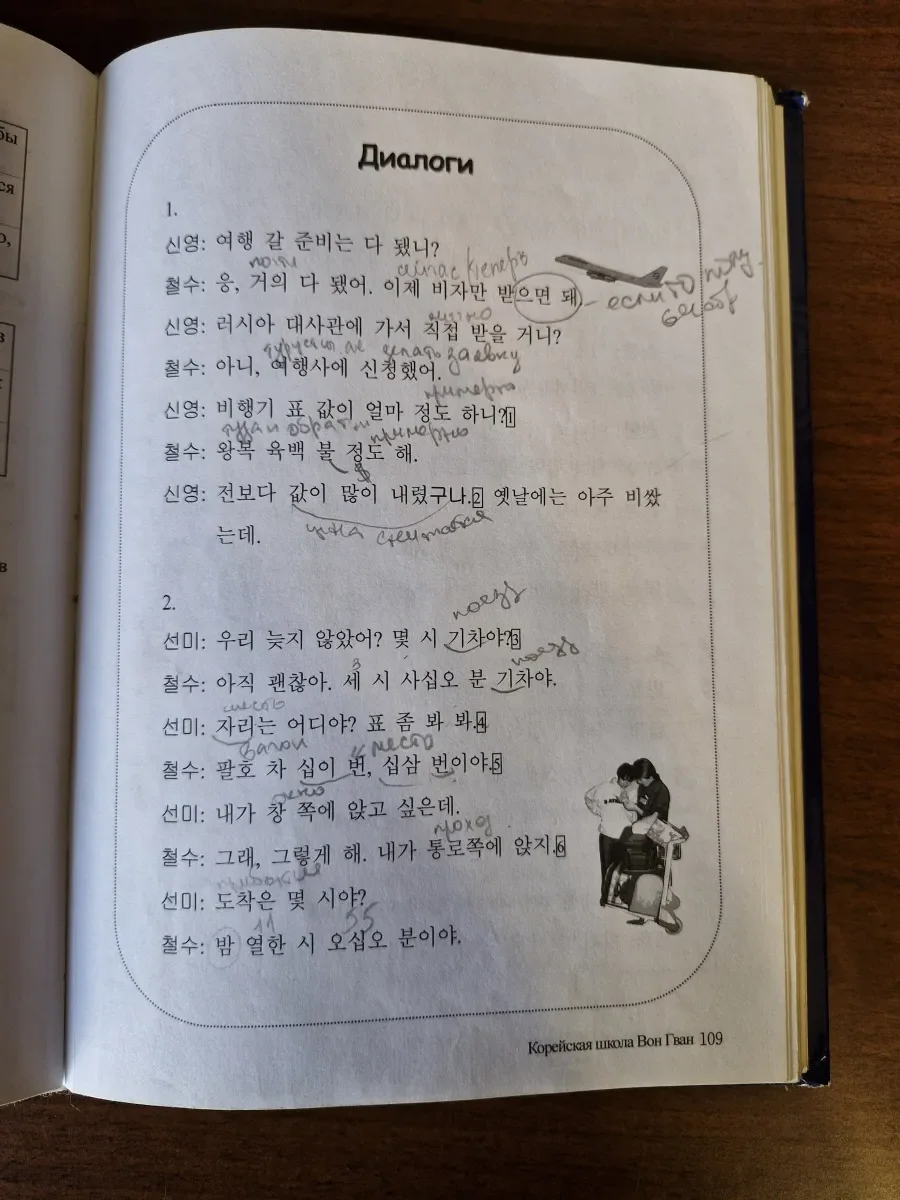 бы
ся
о,
в
в
Диалоги
1.
신영: 여행 갈 준비는 다 됐니?
почти сейчас
철수: 응, 거의 다 됐어. 이제 비자만 받으면 돼.
если то
신영: 러시아 대사관에 가서 직접 받을 거니?
лично
делать заявку
철수: 아니, 여행사에 신청했어.
примерно
신영: 비행기 표 값이 얼마 정도 하니?1
туда и обратно примерно
철수: 왕복 육백 불 정도 해.
$
신영: 전보다 값이 많이 내렸구나.2 옛날에는 아주 비쌌
는데.
цена
2.
поезд
선미: 우리 늦지 않았어? 몇 시 기차야?3
3 поезд
철수: 아직 괜찮아. 세 시 사십오 분 기차야.
место
선미: 자리는 어디야? 표 좀 봐 봐.4
вагон место
철수: 팔호 차 십이 번, 십삼 번이야.5
окно
선미: 내가 창 쪽에 앉고 싶은데.
проход
철수: 그래, 그렇게 해. 내가 통로쪽에 앉지.6
선미: 도착은 몇 시야?
11 55
철수: 밤 열한 시 오십오 분이야.
Корейская школа Вон Гван 109